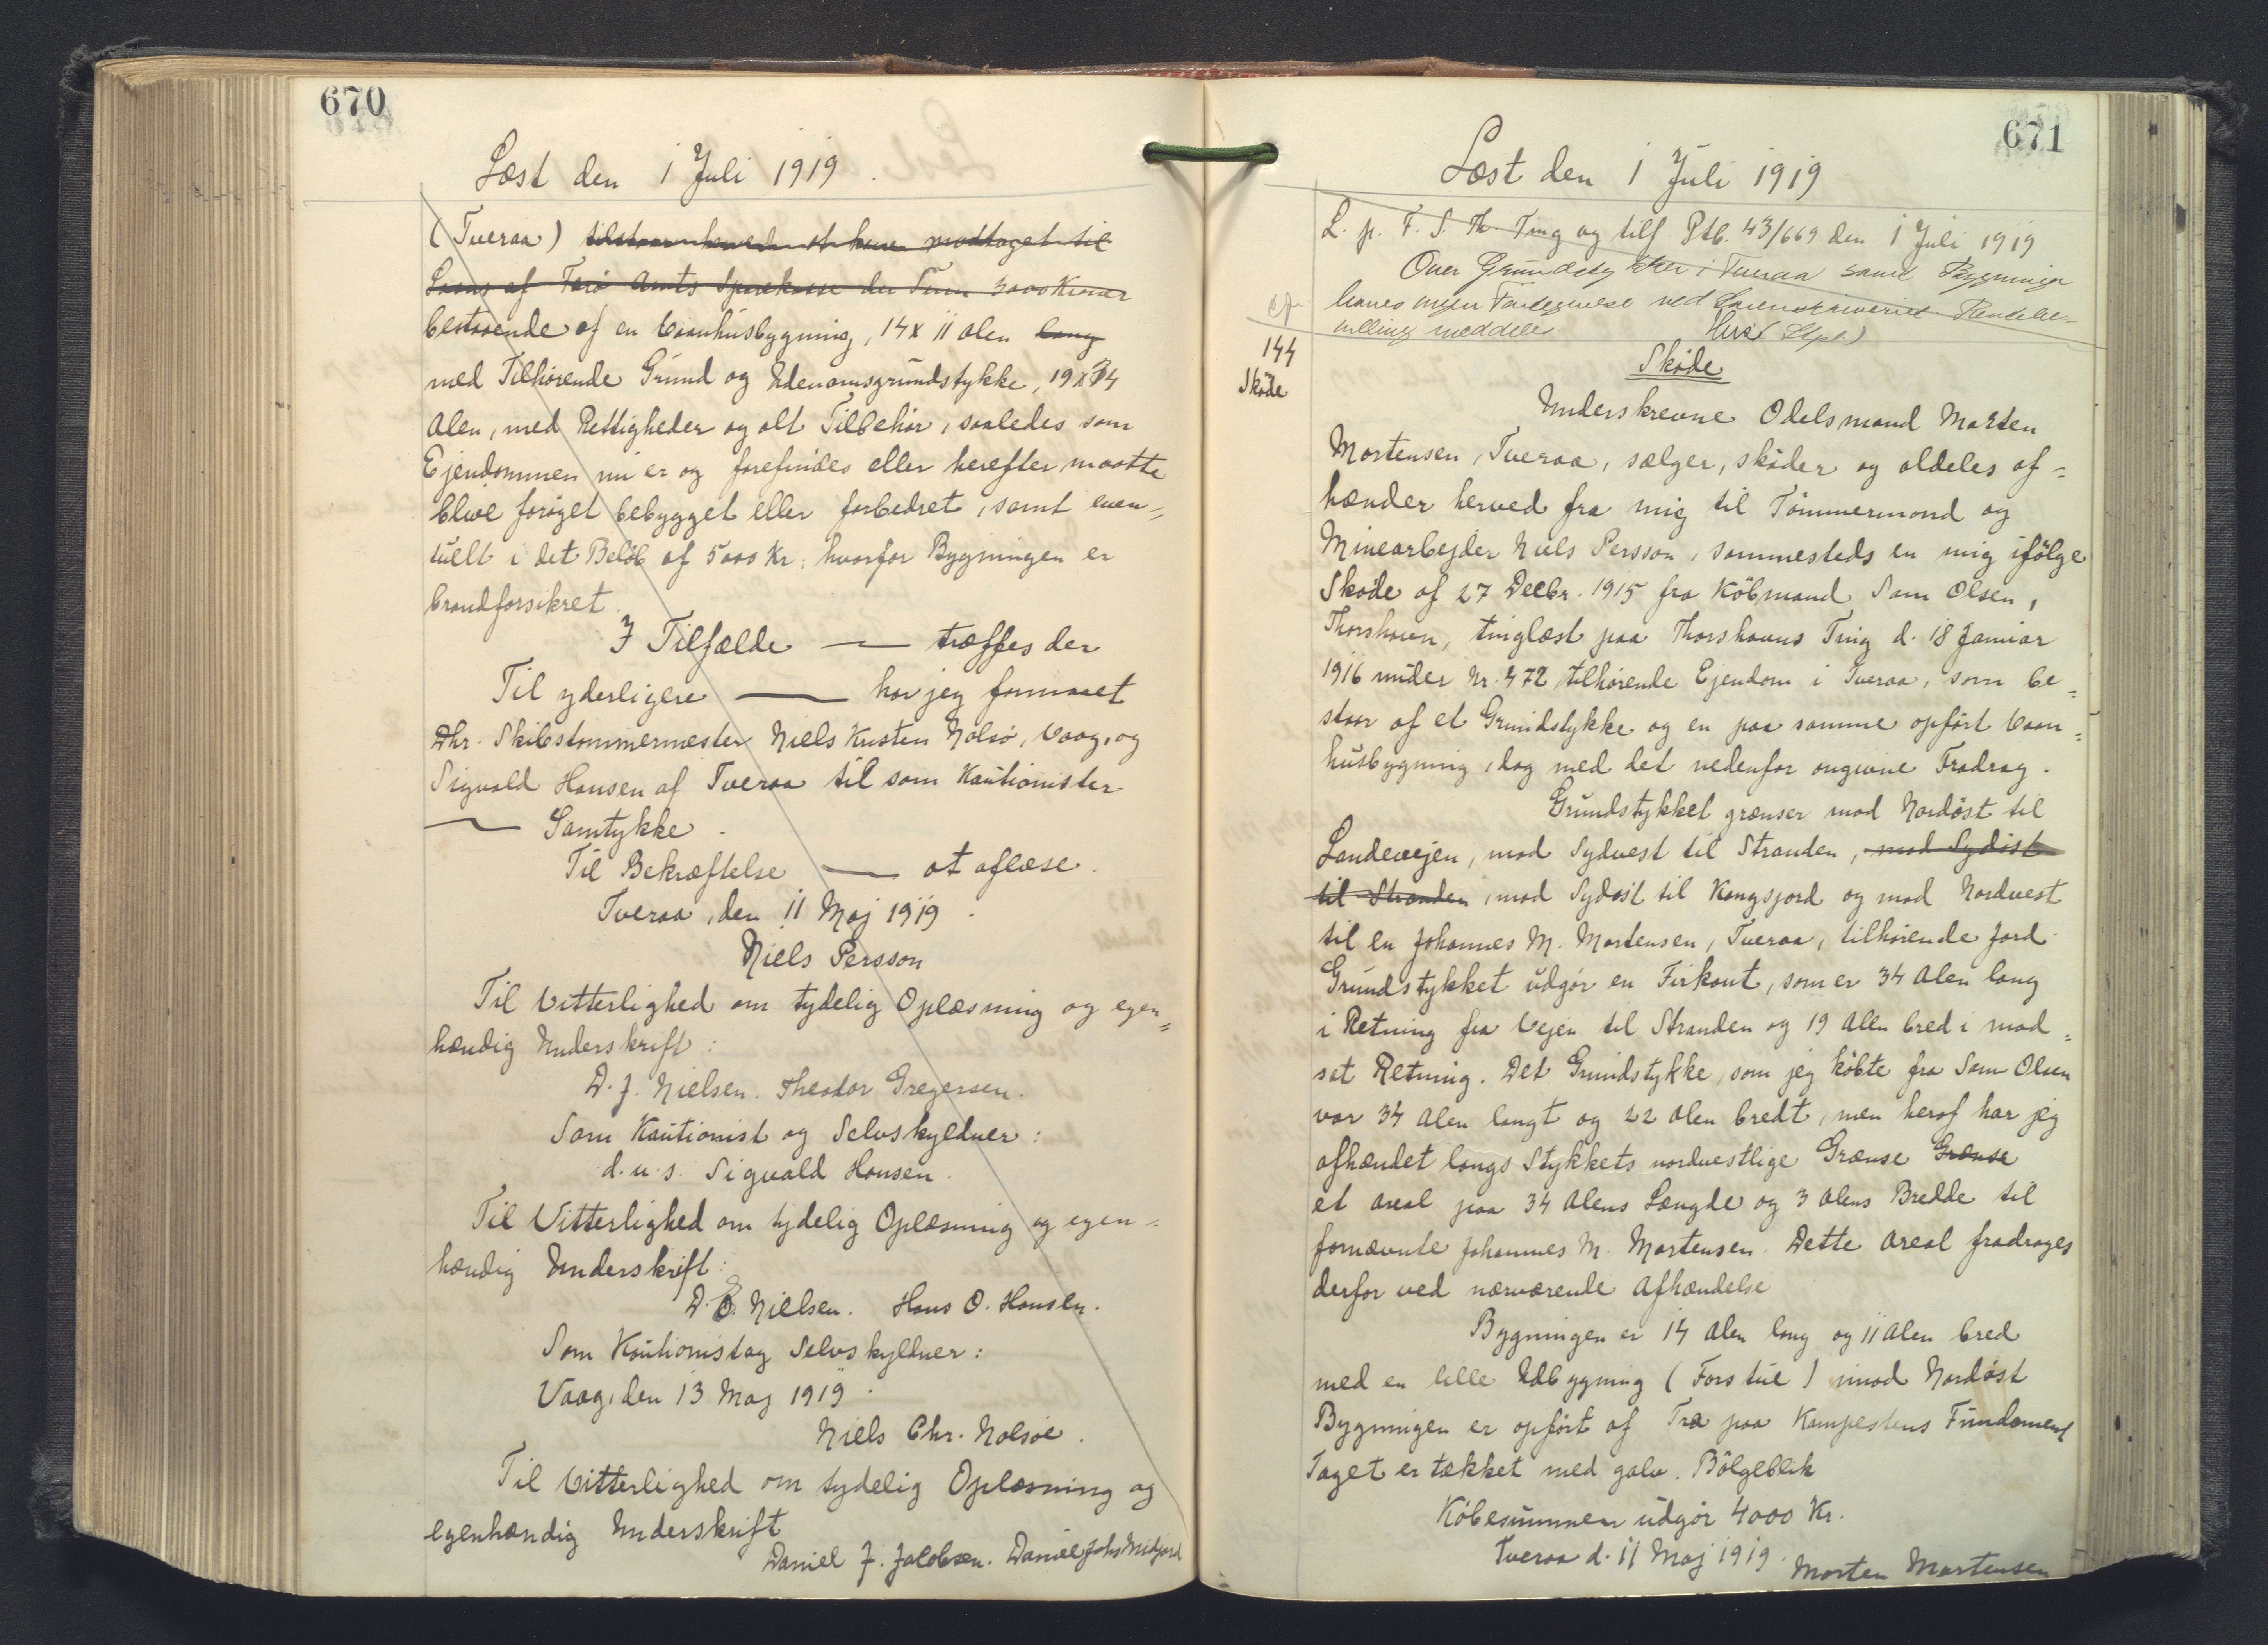 670
Læst den 1 Juli 1919.
(Tveraa) tilstaar herved at have modtaget til
Laans af Færø Amts Sparekasse den Sum 3000 Kroner
bestaaende af en Vaanhusbygning, 14 x 11 Alen lang
med Tilhørende Grund og Udenomsgrundstykke, 19 x 34
Alen, med Rettigheder og alt Tilbehör, saaledes som
Ejendommen nu er og forefindes eller herefter maatte
blive forøget bebygget eller forbedret, samt even=
tuelt i det Beløb af 5000 Kr, hvorfor Bygningen er
brandforsikret.
I Tilfælde — træffes der
Til yderligere — har jeg formaaet
Dhr. Skibstømmermester Niels Kristen Nolsö, Vaag, og
Sigvald Hansen af Tveraa til som Kautionister
— Samtykke.
Til Bekræftelse — at aflæse.
Tveraa, den 11 Maj 1919.
Niels Persson
Til Vitterlighed om tydelig Oplæsning og egen=
hændig Underskrift:
D. J. Nielsen. Theodor Gregersen.
Som Kautionist og Selvskyldner:
d. u. s. Sigvald Hansen.
Til Vitterlighed om tydelig Oplæsning og egen=
hændig Underskrift:
D. Nielsen. Hans O. Hansen.
Som Kautionist og Selvskyldner:
Vaag, den 13 Maj 1919.
Niels Chr. Nolsøe.
Til Vitterlighed om tydelig Oplæsning og
egenhændig Underskrift
Daniel J. Jacobsen. Daniel Johs Midjord
671
Læst den 1 Juli 1919
L. p. F. S. Th. Ting og tilf Ptb. 43/669 den 1 Juli 1919
Over Grundstykker i Tveraa samt Bygninger
haves ingen Fortegnelse ved Sorenskriveriet.
villing meddeles. (Stpl)
144
Skøde
Skøde
Underskrevne Odelsmand Morten
Mortensen, Tveraa, sælger, skøder og aldeles af=
hænder herved fra mig til Tömmermand og
Minearbejder Niels Persson, sammesteds en mig ifölge
Skøde af 27 Decbr. 1915 fra Köbmand Sam Olsen,
Thorshavn, tinglæst paa Thorshavns Ting d. 18 Januar
1916 under Nr. 472 tilhørende Ejendom i Tveraa, som be=
staar af et Grundstykke og en paa samme opfört Vaan=
husbygning, dog med det nedenfor angivne Fradrag.
Grundstykket grænser mod Nordöst til
Landevejen, mod Sydvest til Stranden, mod Sydöst
til Stranden, mod Sydøst til Kongsjord og mod Nordvest
til en Johannes M. Mortensen, Tveraa, tilhørende Jord
Grundstykket udgør en Firkant, som er 34 Alen lang
i Retning fra Vejen til Stranden og 19 Alen bred i mod=
sat Retning. Det Grundstykke, som jeg købte fra Sam Olsen
var 34 Alen langt og 22 Alen bredt, men heraf har jeg
afhændet langs Stykkets nordvestlige Grænse Grænse
et Areal paa 34 Alens Længde og 3 Alens Bredde til
fornævnte Johannes M. Mortensen. Dette Areal fradrages
derfor ved nærværende Afhændelse
Bygningen er 14 Alen lang og 11 Alen bred
med en lille Udbygning (Forstue) imod Nordøst
Bygningen er opført af Træ paa Kampestens Fundament
Taget er tækket med galv. Bölgeblik
Købesummen udgör 4000 Kr.
Tveraa d. 11 Maj 1919. Morten Mortensen